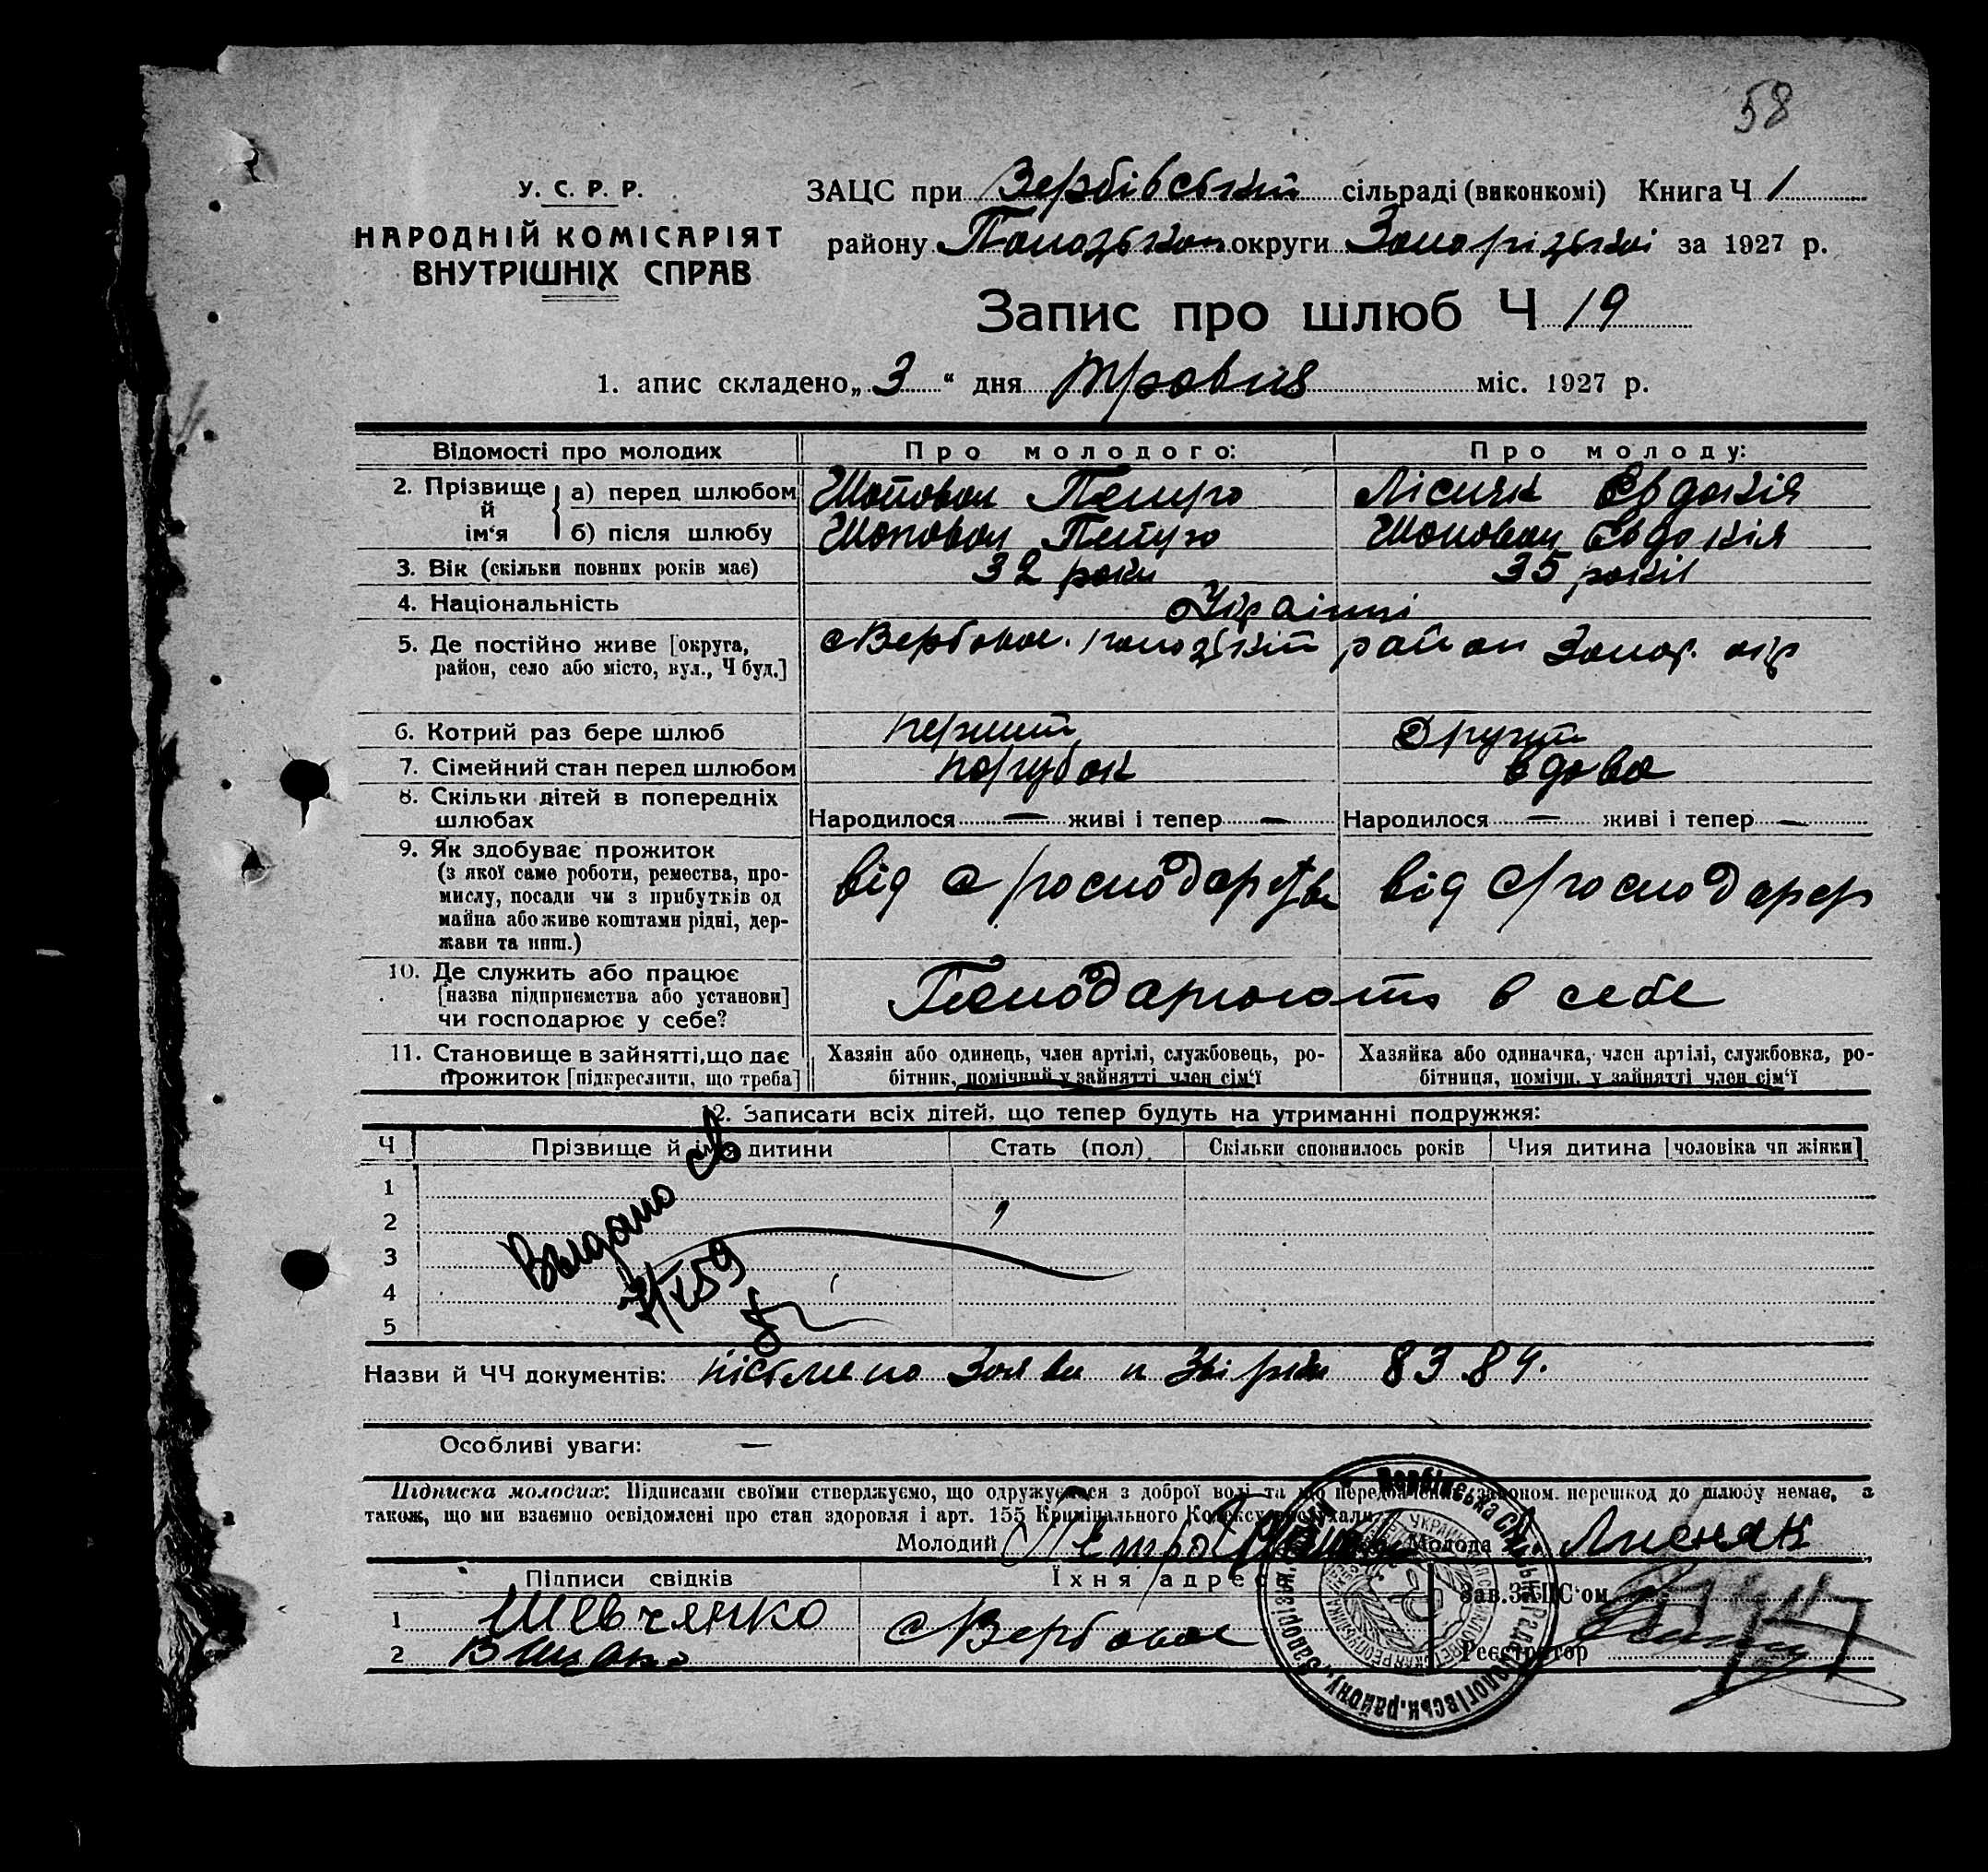 58
У. С. Р. Р.
НАРОДНІЙ КОМІСАРІЯТ
ВНУТРІШНІХ СПРАВ
ЗАЦС при Вербівський сільраді (виконкомі) Книга Ч 1
району округи за 1927 р.
Запис про шлюб Ч 19
1. апис складено „ 3 “ дня травня міс. 1927 р.
Відомості про молодих Про молодого: Про молоду:
2. Прізвище й ім'я а) перед шлюбом Шаповал Петро Лісняк Євдокія
б) після шлюбу Шаповал Петро Шаповал Євдокія
3. Вік (скільки повних років має) 32 роки 35 років
4. Національність Українці
5. Де постійно живе [округа, район, село або місто, вул., Ч буд.] с Вербове район Запор. окр
6. Котрий раз бере шлюб перший другий
7. Сімейний стан перед шлюбом парубок вдова
8. Скільки дітей в попередніх шлюбах Народилося — живі і тепер — Народилося — живі і тепер —
9. Як здобуває прожиток
(з якої саме роботи, ремества, про-
мислу, посади чи з прибутків од
майна або живе коштами рідні, дер-
жави та инш.)
від с від с
10. Де служить або працює
[назва підприємства або установи]
чи господарює у себе?
Господарюють в себе
11. Становище в зайнятті, що дає
прожиток [підкреслити, що треба]
Хазяїн або одинець, член артілі, службовець, ро-
бітник, помічний у зайнятті член сім'ї
Хазяйка або одиначка, член артілі, службовка, ро-
бітниця, помічн. у зайнятті член сім'ї
12. Записати всіх дітей, що тепер будуть на утриманні подружжя:
Ч Прізвище й ім'я дитини Стать (пол) Скільки сповнилось років Чия дитина [чоловіка чи жінки]
1
2
3
4
5
Выдано св
Назви й ЧЧ документів: заяви 83.84.
Особливі уваги: —
Підписка молодих: Підписами своїми стверджуємо, що одружуємося з доброї волі та що передбачених законом перешкод до шлюбу немає, а
також, що ми взаємно освідомлені про стан здоровля і арт. 155 Кримінального Кодексу вислухали.
Молодий Петро Молода Лисняк
Підписи свідків Їхня адреса Зав. ЗАЦС'ом
1 Шевченко с Вербове
2 Реєстратор